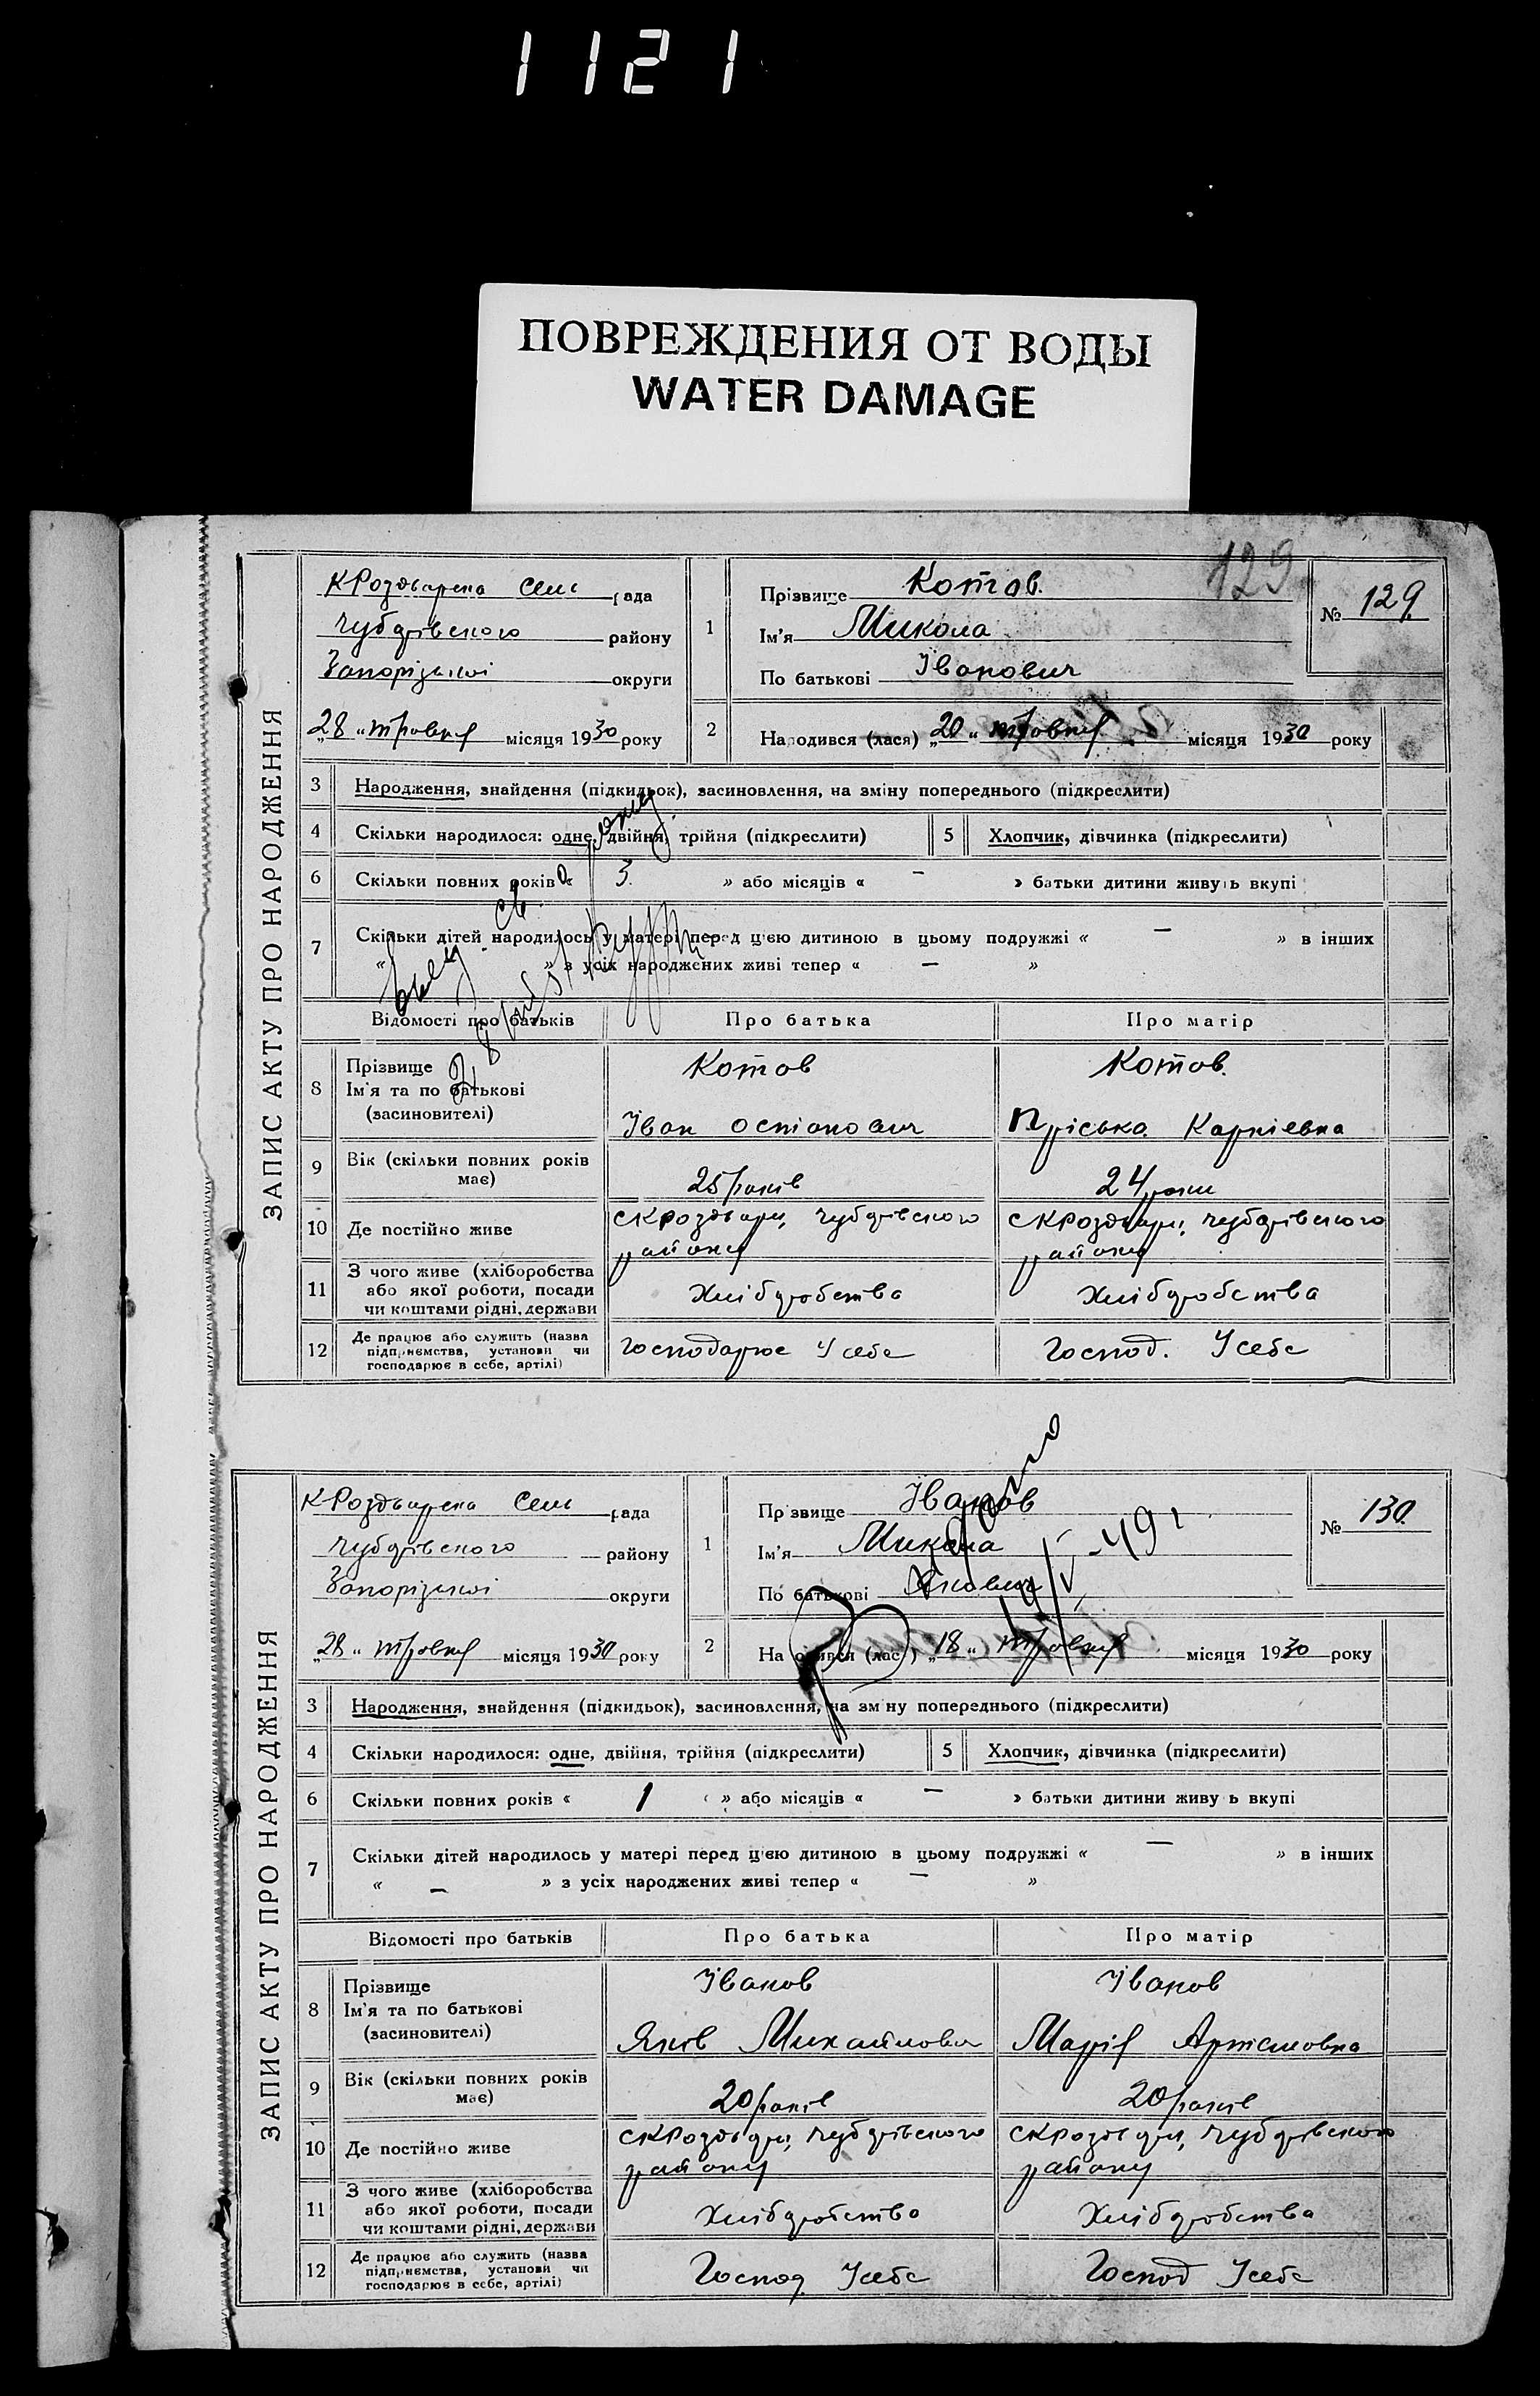 1121
ПОВРЕЖДЕНИЯ ОТ ВОДЫ
WATER DAMAGE
129
ЗАПИС АКТУ ПРО НАРОДЖЕННЯ
рада
Чубарівського району
Запорізької округи
„28“ травня місяця 1930 року
1
Прізвище Котов.
Ім'я Микола
По батькові Іванович
№ 129
2
Народився (лася) „20“ травня місяця 1930 року
3 Народження, знайдення (підкидьок), засиновлення, на зміну попереднього (підкреслити)
4 Скільки народилося: одне, двійня, трійня (підкреслити) 5 Хлопчик, дівчинка (підкреслити)
6 Скільки повних років « 3. » або місяців « — » батьки дитини живуть вкупі
7 Скільки дітей народилось у матері перед цією дитиною в цьому подружжі « — » в інших
« » з усіх народжених живі тепер « — »
Відомості про батьків Про батька Про матір
8 Прізвище Ім'я та по батькові (засиновителі)
Котов Котов.
Іван Остапович Пріська Карпіевна
9 Вік (скільки повних років має) 25 років 24 роки
10 Де постійно живе Чубарівського району Чубарівського району
11 З чого живе (хліборобства або якої роботи, посади чи коштами рідні, держави Хліборобства Хліборобства
12 Де працює або служить (назва підприємства, установи чи господарює в себе, артілі) Господарює У себе Господ. У себе
ЗАПИС АКТУ ПРО НАРОДЖЕННЯ
рада
Чубарівського району
Запорізької округи
„28“ травня місяця 1930 року
1
Прізвище Іванов
Ім'я Микола
По батькові Якович
№ 130.
2
Народився (лася) „18“ травня місяця 1930 року
3 Народження, знайдення (підкидьок), засиновлення, на зміну попереднього (підкреслити)
4 Скільки народилося: одне, двійня, трійня (підкреслити) 5 Хлопчик, дівчинка (підкреслити)
6 Скільки повних років « 1 » або місяців « — » батьки дитини живуть вкупі
7 Скільки дітей народилось у матері перед цією дитиною в цьому подружжі « — » в інших
« — » з усіх народжених живі тепер « — »
Відомості про батьків Про батька Про матір
8 Прізвище Ім'я та по батькові (засиновителі)
Іванов Іванов
Яків Михайлович Марія Артемовна
9 Вік (скільки повних років має) 20 років 20 років
10 Де постійно живе Чубарівського району Чубарівського району
11 З чого живе (хліборобства або якої роботи, посади чи коштами рідні, держави Хліборобство Хліборобства
12 Де працює або служить (назва підприємства, установи чи господарює в себе, артілі) Господ У себе Господ У себе